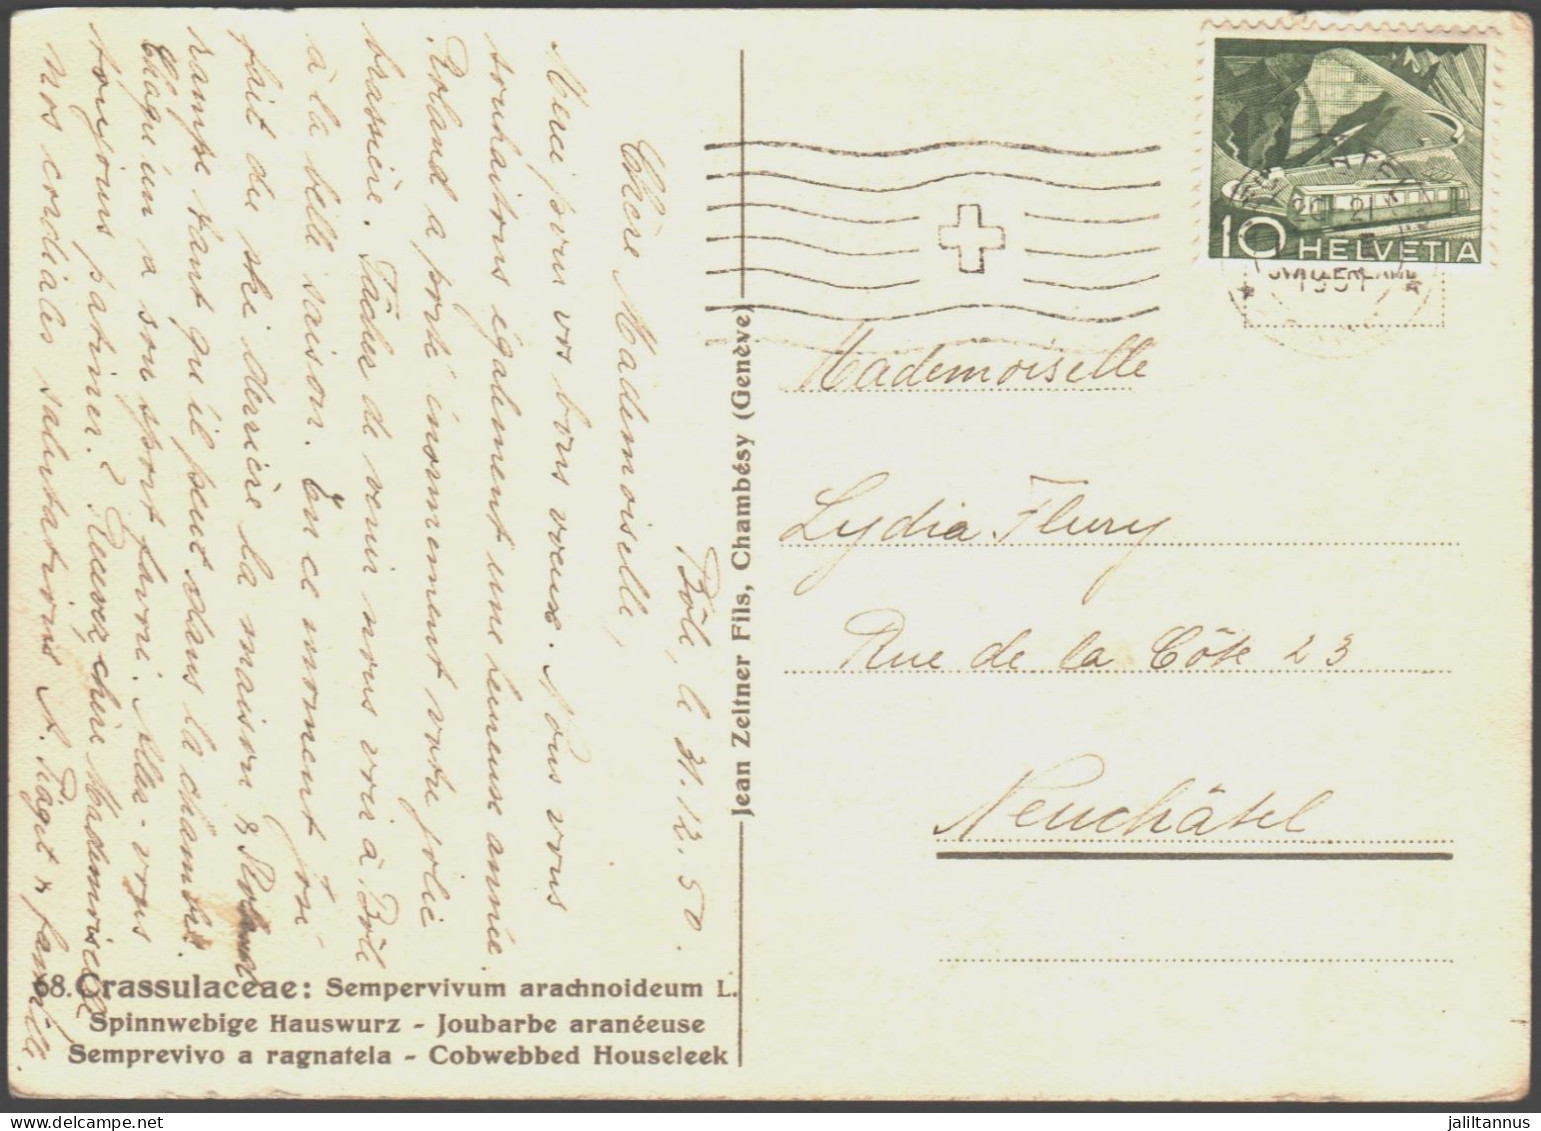 Bôle, le 31.12.50.
Chère Mademoiselle,
Merci pour vos bons voeux. Nous vous
souhaitons également une heureuse année.
Roland a porté énormément votre jolie
brassière. Tâchez de venir nous voir à Bôle
à la belle saison. En ce moment on
fait du ski derrière la maison & Roland
rampe tant qu'il peut dans la chambre.
Chaqu'un a son sport favori. Allez-vous
toujours patiner? Recevez chère Mademoiselle
nos cordiales salutations A. Piaget & famille.
68. Crassulaceae: Sempervivum arachnoideum L.
Spinnwebige Hauswurz - Joubarbe aranéeuse
Semprevivo a ragnatela - Cobwebbed Houseleek
Jean Zeltner Fils, Chambésy (Genève)
10 HELVETIA
1951
Mademoiselle
Lydia Flury
Rue de la Côte 23
Neuchâtel
jaliltannus